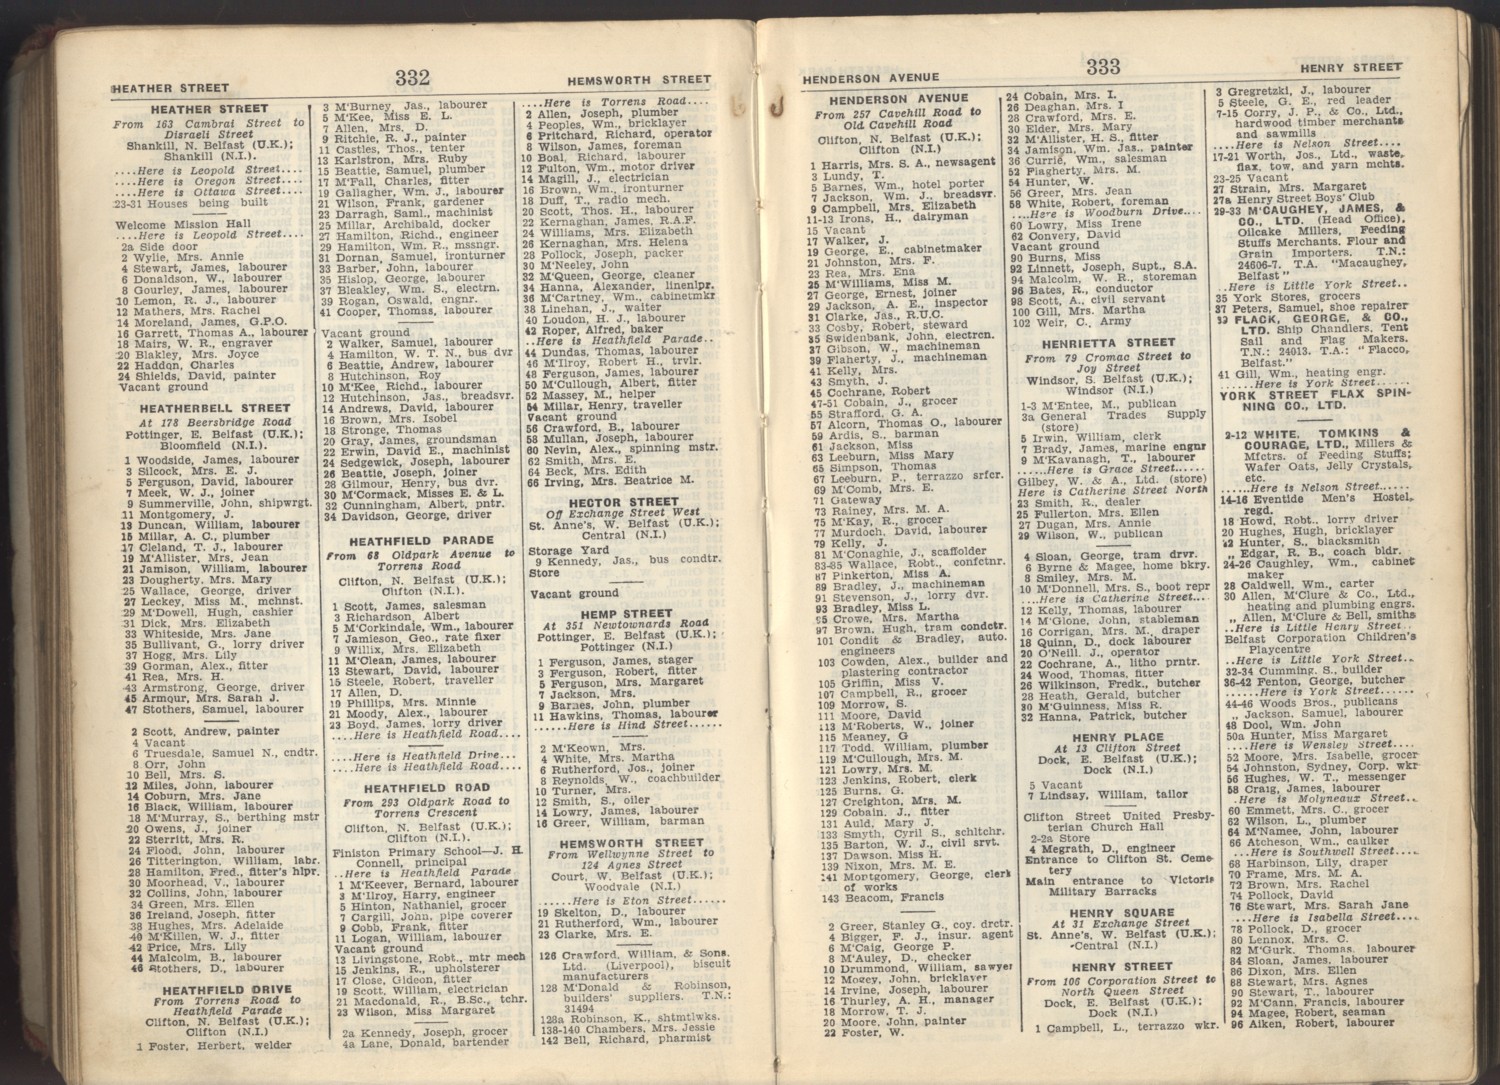 HEATHER STREET 332 HEMSWORTH STREET
HEATHER STREET
From 163 Cambrai Street to
Disraeli Street
Shankill, N. Belfast (U.K.);
Shankill (N.I.).
....Here is Leopold Street....
....Here is Oregon Street....
....Here is Ottawa Street....
23-31 Houses being built
Welcome Mission Hall
....Here is Leopold Street....
2a Side door
2 Wylie, Mrs. Annie
4 Stewart, James, labourer
6 Donaldson, W., labourer
8 Gourley, James, labourer
10 Lemon, R. J., labourer
12 Mathers, Mrs. Rachel
14 Moreland, James, G.P.O.
16 Garrett, Thomas A., labourer
18 Mairs, W. R., engraver
20 Blakley, Mrs. Joyce
22 Haddon, Charles
24 Shields, David, painter
Vacant ground
HEATHERBELL STREET
At 178 Beersbridge Road
Pottinger, E. Belfast (U.K.);
Bloomfield (N.I.).
1 Woodside, James, labourer
3 Silcock, Mrs. E. J.
5 Ferguson, David, labourer
7 Meek, W. J., joiner
9 Summerville, John, shipwrgt.
11 Montgomery, J.
13 Duncan, William, labourer
15 Millar, A. C., plumber
17 Cleland, T. J., labourer
19 M'Allister, Mrs. Jean
21 Jamison, William, labourer
23 Dougherty, Mrs. Mary
25 Wallace, George, driver
27 Leckey, Miss M., mchnst.
29 M'Dowell, Hugh, cashier
31 Dick, Mrs. Elizabeth
33 Whiteside, Mrs. Jane
35 Bullivant, G., lorry driver
37 Hogg, Mrs. Lily
39 Gorman, Alex., fitter
41 Rea, Mrs. H.
43 Armstrong, George, driver
45 Armour, Mrs. Sarah J.
47 Stothers, Samuel, labourer
2 Scott, Andrew, painter
4 Vacant
6 Truesdale, Samuel N., cndtr.
8 Orr, John
10 Bell, Mrs. S.
12 Miles, John, labourer
14 Coburn, Mrs. Jane
16 Black, William, labourer
18 M'Murray, S., berthing mstr
20 Owens, J., joiner
22 Sterritt, Mrs. R.
24 Flood, John, labourer
26 Titterington, William, labr.
28 Hamilton, Fred., fitter's hlpr.
30 Moorhead, V., labourer
32 Collins, John, labourer
34 Green, Mrs. Ellen
36 Ireland, Joseph, fitter
38 Hughes, Mrs. Adelaide
40 M'Killen, W. J., fitter
42 Price, Mrs. Lily
44 Malcolm, B., labourer
46 Stothers, D., labourer
HEATHFIELD DRIVE
From Torrens Road to
Heathfield Parade
Clifton, N. Belfast (U.K.);
Clifton (N.I.)
1 Foster, Herbert, welder
3 M'Burney, Jas., labourer
5 M'Kee, Miss E. L.
7 Allen, Mrs. D.
9 Ritchie, R. J., painter
11 Castles, Thos., tenter
13 Karlstron, Mrs. Ruby
15 Beattie, Samuel, plumber
17 M'Fall, Charles, fitter
19 Gallagher, Wm. J., labourer
21 Wilson, Frank, gardener
23 Darragh, Saml., machinist
25 Millar, Archibald, docker
27 Hamilton, Richd., engineer
29 Hamilton, Wm. R., mssngr.
31 Dornan, Samuel, ironturner
33 Barber, John, labourer
35 Hislop, George, labourer
37 Bleakley, Wm. S., electrn.
39 Rogan, Oswald, engnr.
41 Cooper, Thomas, labourer
Vacant ground
2 Walker, Samuel, labourer
4 Hamilton, W. T. N., bus dvr
6 Beattie, Andrew, labourer
8 Hutchinson, Roy
10 M'Kee, Richd., labourer
12 Hutchinson, Jas., breadsvr.
14 Andrews, David, labourer
16 Brown, Mrs. Isobel
18 Stronge, Thomas
20 Gray, James, groundsman
22 Erwin, David E., machinist
24 Sedgewick, Joseph, labourer
26 Beattie, Joseph, joiner
28 Gilmour, Henry, bus dvr.
30 M'Cormack, Misses E. & L.
32 Cunningham, Albert, pntr.
34 Davidson, George, driver
HEATHFIELD PARADE
From 68 Oldpark Avenue to
Torrens Road
Clifton, N. Belfast (U.K.);
Clifton (N.I.).
1 Scott, James, salesman
3 Richardson, Albert
5 M'Corkindale, Wm., labourer
7 Jamieson, Geo., rate fixer
9 Willix, Mrs. Elizabeth
11 M'Clean, James, labourer
13 Stewart, David, labourer
15 Steele, Robert, traveller
17 Allen, D.
19 Phillips, Mrs. Minnie
21 Moody, Alex., labourer
23 Boyd, James, lorry driver
....Here is Heathfield Road....
....Here is Heathfield Drive....
....Here is Heathfield Road....
HEATHFIELD ROAD
From 293 Oldpark Road to
Torrens Crescent
Clifton, N. Belfast (U.K.);
Clifton (N.I.).
Finiston Primary School—J. H.
Connell, principal
..Here is Heathfield Parade
1 M'Keever, Bernard, labourer
3 M'Ilroy, Harry, engineer
5 Hinton, Nathaniel, grocer
7 Cargill, John, pipe coverer
9 Cobb, Frank, fitter
11 Logan, William, labourer
Vacant ground
13 Livingstone, Robt., mtr mech
15 Jenkins, R., upholsterer
17 Close, Gideon, fitter
19 Scott, William, electrician
21 Macdonald, R., B.Sc., tchr.
23 Wilson, Miss Margaret
2a Kennedy, Joseph, grocer
4a Lane, Donald, bartender
....Here is Torrens Road....
2 Allen, Joseph, plumber
4 Peoples, Wm., bricklayer
6 Pritchard, Richard, operator
8 Wilson, James, foreman
10 Boal, Richard, labourer
12 Fulton, Wm., motor driver
14 Magill, J., electrician
16 Brown, Wm., ironturner
18 Duff, T., radio mech.
20 Scott, Thos. H., labourer
22 Kernaghan, James, R.A.F.
24 Williams, Mrs. Elizabeth
26 Kernaghan, Mrs. Helena
28 Pollock, Joseph, packer
30 M'Neeley, John
32 M'Queen, George, cleaner
34 Hanna, Alexander, linenlpr.
36 M'Cartney, Wm., cabinetmkr
38 Linehan, J., waiter
40 Loudon, H. J., labourer
42 Roper, Alfred, baker
..Here is Heathfield Parade..
44 Dundas, Thomas, labourer
46 M'Ilroy, Robert H., trvlr.
48 Ferguson, James, labourer
50 M'Cullough, Albert, fitter
52 Massey, M., helper
54 Millar, Henry, traveller
Vacant ground
56 Crawford, B., labourer
58 Mullan, Joseph, labourer
60 Nevin, Alex., spinning mstr.
62 Smith, Mrs. E.
64 Beck, Mrs. Edith
66 Irving, Mrs. Beatrice M.
HECTOR STREET
Off Exchange Street West
St. Anne's, W. Belfast (U.K.);
Central (N.I.)
Storage Yard
9 Kennedy, Jas., bus condtr.
Store
Vacant ground
HEMP STREET
At 351 Newtownards Road
Pottinger, E. Belfast (U.K.);
Pottinger (N.I.)
1 Ferguson, James, stager
3 Ferguson, Robert, fitter
5 Ferguson, Mrs. Margaret
7 Jackson, Mrs.
9 Barnes, John, plumber
11 Hawkins, Thomas, labourer
......Here is Hind Street......
2 M'Keown, Mrs.
4 White, Mrs. Martha
6 Rutherford, Jos., joiner
8 Reynolds, W., coachbuilder
10 Turner, Mrs.
12 Smith, S., oiler
14 Lowry, James, labourer
16 Greer, William, barman
HEMSWORTH STREET
From Wellwynne Street to
124 Agnes Street
Court, W. Belfast (U.K.);
Woodvale (N.I.)
......Here is Eton Street......
19 Skelton, D., labourer
21 Rutherford, Wm., labourer
23 Clarke, Mrs. E.
126 Crawford, William, & Sons.
Ltd. (Liverpool), biscuit
manufacturers
128 M'Donald & Robinson,
builders' suppliers. T.N.:
31494
128a Robinson, K., shtmtlwks.
138-140 Chambers, Mrs. Jessie
142 Bell, Richard, pharmist
HENDERSON AVENUE 333 HENRY STREET
HENDERSON AVENUE
From 257 Cavehill Road to
Old Cavehill Road
Clifton, N. Belfast (U.K.);
Clifton (N.I.)
1 Harris, Mrs. S. A., newsagent
3 Lundy, T.
5 Barnes, Wm., hotel porter
7 Jackson, Wm. J., breadsvr.
9 Campbell, Mrs. Elizabeth
11-13 Irons, H., dairyman
15 Vacant
17 Walker, J.
19 George, E., cabinetmaker
21 Johnston, Mrs. F.
23 Rea, Mrs. Ena
25 M'Williams, Miss M.
27 George, Ernest, joiner
29 Jackson, A. E., inspector
31 Clarke, Jas., R.U.C.
33 Cosby, Robert, steward
35 Swidenbank, John, electrcn.
37 Gibson, W., machineman
39 Flaherty, J., machineman
41 Kelly, Mrs.
43 Smyth, J.
45 Cochrane, Robert
47-51 Cobain, J., grocer
55 Strafford, G. A.
57 Alcorn, Thomas O., labourer
59 Ardis, S., barman
61 Jackson, Miss
63 Leeburn, Miss Mary
65 Simpson, Thomas
67 Leeburn, P., terrazzo srfcr.
69 M'Comb, Mrs. E.
71 Gateway
73 Rainey, Mrs. M. A.
75 M'Kay, R., grocer
77 Murdoch, David, labourer
79 Kelly, J.
81 M'Conaghie, J., scaffolder
83-85 Wallace, Robt., confctnr.
87 Pinkerton, Miss A.
89 Bradley, J., machineman
91 Stevenson, J., lorry dvr.
93 Bradley, Miss L.
95 Crowe, Mrs. Martha
97 Brown, Hugh, tram condctr.
101 Condit & Bradley, auto.
engineers
103 Cowden, Alex., builder and
plastering contractor
105 Griffin, Miss V.
107 Campbell, R., grocer
109 Morrow, S.
111 Moore, David
113 M'Roberts, W., joiner
115 Meaney, G
117 Todd, William, plumber
119 M'Cullough, Mrs. M.
121 Lowry, Mrs. M.
123 Jenkins, Robert, clerk
125 Burns, G.
127 Creighton, Mrs. M.
129 Cobain, J., fitter
131 Auld, Mary J.
133 Smyth, Cyril S., schltchr.
135 Barton, W. J., civil srvt.
137 Dawson, Miss H.
139 Nixon, Mrs. M. E.
141 Montgomery, George, clerk
of works
143 Beacom, Francis
2 Greer, Stanley G., coy. drctr.
4 Bigger, F. J., insur. agent
6 M'Caig, George P.
8 M'Auley, D., checker
10 Drummond, William, sawyer
12 Mogey, John, bricklayer
14 Irvine, Joseph, labourer
16 Thurley, A. H., manager
18 Morrow, T. J.
20 Moore, John, painter
22 Foster, W.
24 Cobain, Mrs. I.
26 Deaghan, Mrs. I
28 Crawford, Mrs. E.
30 Elder, Mrs. Mary
32 M'Allister, H. S., fitter
34 Jamison, Wm. Jas., painter
36 Currie, Wm., salesman
52 Flagherty, Mrs. M.
54 Hunter, W.
56 Greer, Mrs. Jean
58 White, Robert, foreman
....Here is Woodburn Drive....
60 Lowry, Miss Irene
62 Convery, David
Vacant ground
90 Burns, Miss
92 Linnett, Joseph, Supt., S.A.
94 Malcolm, W. R., storeman
96 Bates, R., conductor
98 Scott, A., civil servant
100 Gill, Mrs. Martha
102 Weir, C., Army
HENRIETTA STREET
From 79 Cromac Street to
Joy Street
Windsor, S. Belfast (U.K.);
Windsor (N.I.)
1-3 M'Entee, M., publican
3a General Trades Supply
(store)
5 Irwin, William, clerk
7 Brady, James, marine engnr
9 M'Kavanagh, T., labourer
......Here is Grace Street......
Gilbey, W. & A., Ltd. (store)
Here is Catherine Street North
23 Smith, R., dealer
25 Fullerton, Mrs. Ellen
27 Dugan, Mrs. Annie
29 Wilson, W., publican
4 Sloan, George, tram drvr.
6 Byrne & Magee, home bkry.
8 Smiley, Mrs. M.
10 M'Donnell, Mrs. S., boot repr
....Here is Catherine Street....
12 Kelly, Thomas, labourer
14 M'Glone, John, stableman
16 Corrigan, Mrs. M., draper
18 Quinn, D., dock labourer
20 O'Neill, J., operator
22 Cochrane, A., litho prntr.
24 Wood, Thomas, fitter
26 Wilkinson, Fredk., butcher
28 Heath, Gerald, butcher
30 M'Guinness, Miss R.
32 Hanna, Patrick, butcher
HENRY PLACE
At 13 Clifton Street
Dock, E. Belfast (U.K.);
Dock (N.I.)
5 Vacant
7 Lindsay, William, tailor
Clifton Street United Presby-
terian Church Hall
2-2a Store
4 Megrath, D., engineer
Entrance to Clifton St. Ceme-
tery
Main entrance to Victoria
Military Barracks
HENRY SQUARE
At 31 Exchange Street
St. Anne's, W. Belfast (U.K.);
Central (N.I.)
HENRY STREET
From 106 Corporation Street to
North Queen Street
Dock, E. Belfast (U.K.);
Dock (N.I.)
1 Campbell, L., terrazzo wkr.
3 Gregretzki, J., labourer
5 Steele, G. E., red leader
7-15 Corry, J. P., & Co., Ltd.,
hardwood timber merchants
and sawmills
....Here is Nelson Street....
17-21 Worth, Jos., Ltd., waste,
flax, tow, and yarn mchts.
23-25 Vacant
27 Strain, Mrs. Margaret
27a Henry Street Boys' Club
29-33 M'CAUGHEY, JAMES, &
CO., LTD. (Head Office),
Oilcake Millers, Feeding
Stuffs Merchants. Flour and
Grain Importers. T.N.:
24606-7. T.A. "Macaughey,
Belfast"
..Here is Little York Street..
35 York Stores, grocers
37 Peters, Samuel, shoe repairer
39 FLACK, GEORGE, & CO.,
LTD. Ship Chandlers, Tent
Sail and Flag Makers.
T.N.: 24013. T.A.: "Flacco,
Belfast."
41 Gill, Wm., heating engr.
......Here is York Street......
YORK STREET FLAX SPIN-
NING CO., LTD.
2-12 WHITE, TOMKINS &
COURAGE, LTD., Millers &
Mfctrs. of Feeding Stuffs;
Wafer Oats, Jelly Crystals,
etc.
......Here is Nelson Street......
14-16 Eventide Men's Hostel,
regd.
18 Howd, Robt., lorry driver
20 Hughes, Hugh, bricklayer
22 Hunter, S., blacksmith
„ Edgar, R. B., coach bldr.
24-26 Caughley, Wm., cabinet
maker
28 Caldwell, Wm., carter
30 Allen, M'Clure & Co., Ltd.,
heating and plumbing engrs.
„ Allen, M'Clure & Bell, smiths
..Here is Little Henry Street..
Belfast Corporation Children's
Playcentre
..Here is Little York Street..
32-34 Cumming, S., builder
36-42 Fenton, George, butcher
......Here is York Street......
44-46 Woods Bros., publicans
„ Jackson, Samuel, labourer
48 Dool, Wm. John
50a Hunter, Miss Margaret
....Here is Wensley Street....
52 Moore, Mrs. Isabelle, grocer
54 Johnston, Sydney, Corp. wkr
56 Hughes, W. T., messenger
58 Craig, James, labourer
.Here is Molyneaux Street..
60 Emmett, Mrs. C., grocer
62 Wilson, L., plumber
64 M'Namee, John, labourer
66 Atcheson, Wm., caulker
...Here is Southwell Street....
68 Harbinson, Lily, draper
70 Frame, Mrs. M. A.
72 Brown, Mrs. Rachel
74 Pollock, David
76 Stewart, Mrs. Sarah Jane
....Here is Isabella Street....
78 Pollock, D., grocer
80 Lennox, Mrs. C.
82 M'Gurk, Thomas, labourer
84 Sloan, James, labourer
86 Dixon, Mrs. Ellen
88 Stewart, Mrs. Agnes
90 Stewart, T., labourer
92 M'Cann, Francis, labourer
94 Magee, Robert, seaman
96 Aiken, Robert, labourer